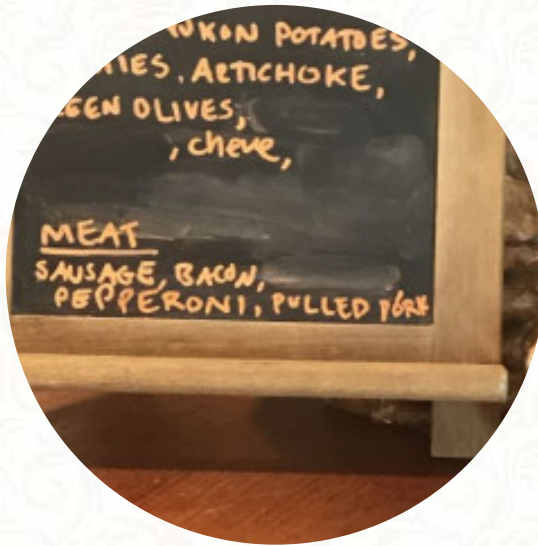 UKON POTATOES,
IES, ARTICHOKE,
EEN OLIVES,
, cheve,
MEAT
SAUSAGE, BACON,
PEPPERONI, PULLED PORK